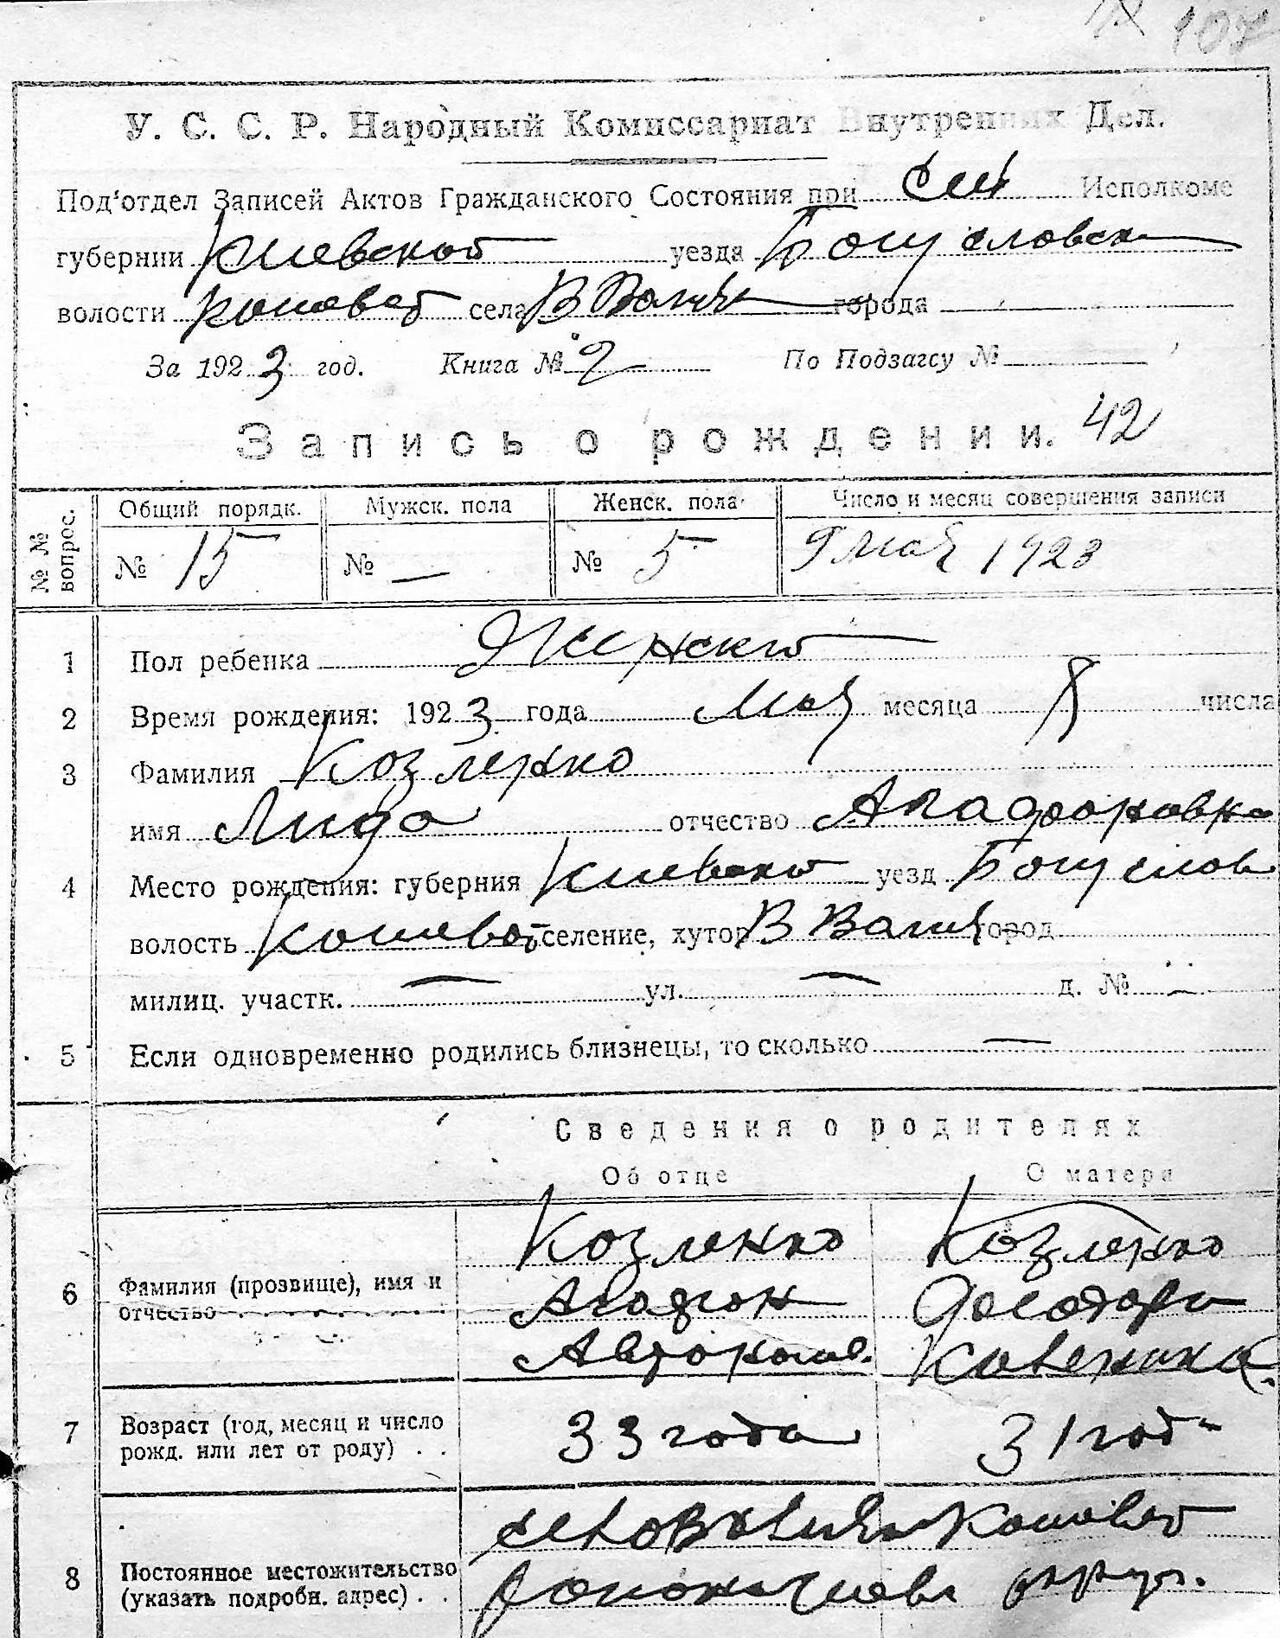 107
У. С. С. Р. Народный Комиссариат Внутренних Дел.
Под'отдел Записей Актов Гражданского Состояния при Исполкоме
губернии Киевской уезда Богуславск
волости села В города
За 1923 год. Книга № 2 По Подзагсу №
Запись о рождении. 42
№ № вопрос. Общий порядк. Мужск. пола Женск. пола Число и месяц совершения записи
№ 15 № — № 5 9 мая 1923
1 Пол ребенка Женский
2 Время рождения: 1923 года Мая месяца 8 числа
3 Фамилия Козленко
имя Лида отчество Агафоновна
4 Место рождения: губерния Киевской уезд Богуслов
волость селение, хутор В город
милиц. участк. — ул. — д. № —
5 Если одновременно родились близнецы, то сколько —
Сведения о родителях
Об отце О матери
6 Фамилия (прозвище), имя и отчество
Козленко Козленко
Агафон
7 Возраст (год, месяц и число рожд. или лет от роду) . .
33 года 31 год
8 Постоянное местожительство (указать подробн. адрес) . .
округ.